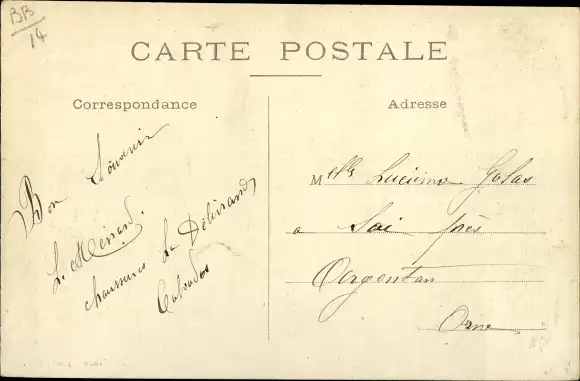 BB
14
CARTE POSTALE
Correspondance
Bon Souvenir
L. Ménard
chaussures La Délivrande
Calvados
Adresse
Melle Lucienne Golas
a Sai près
Argentan
Orne